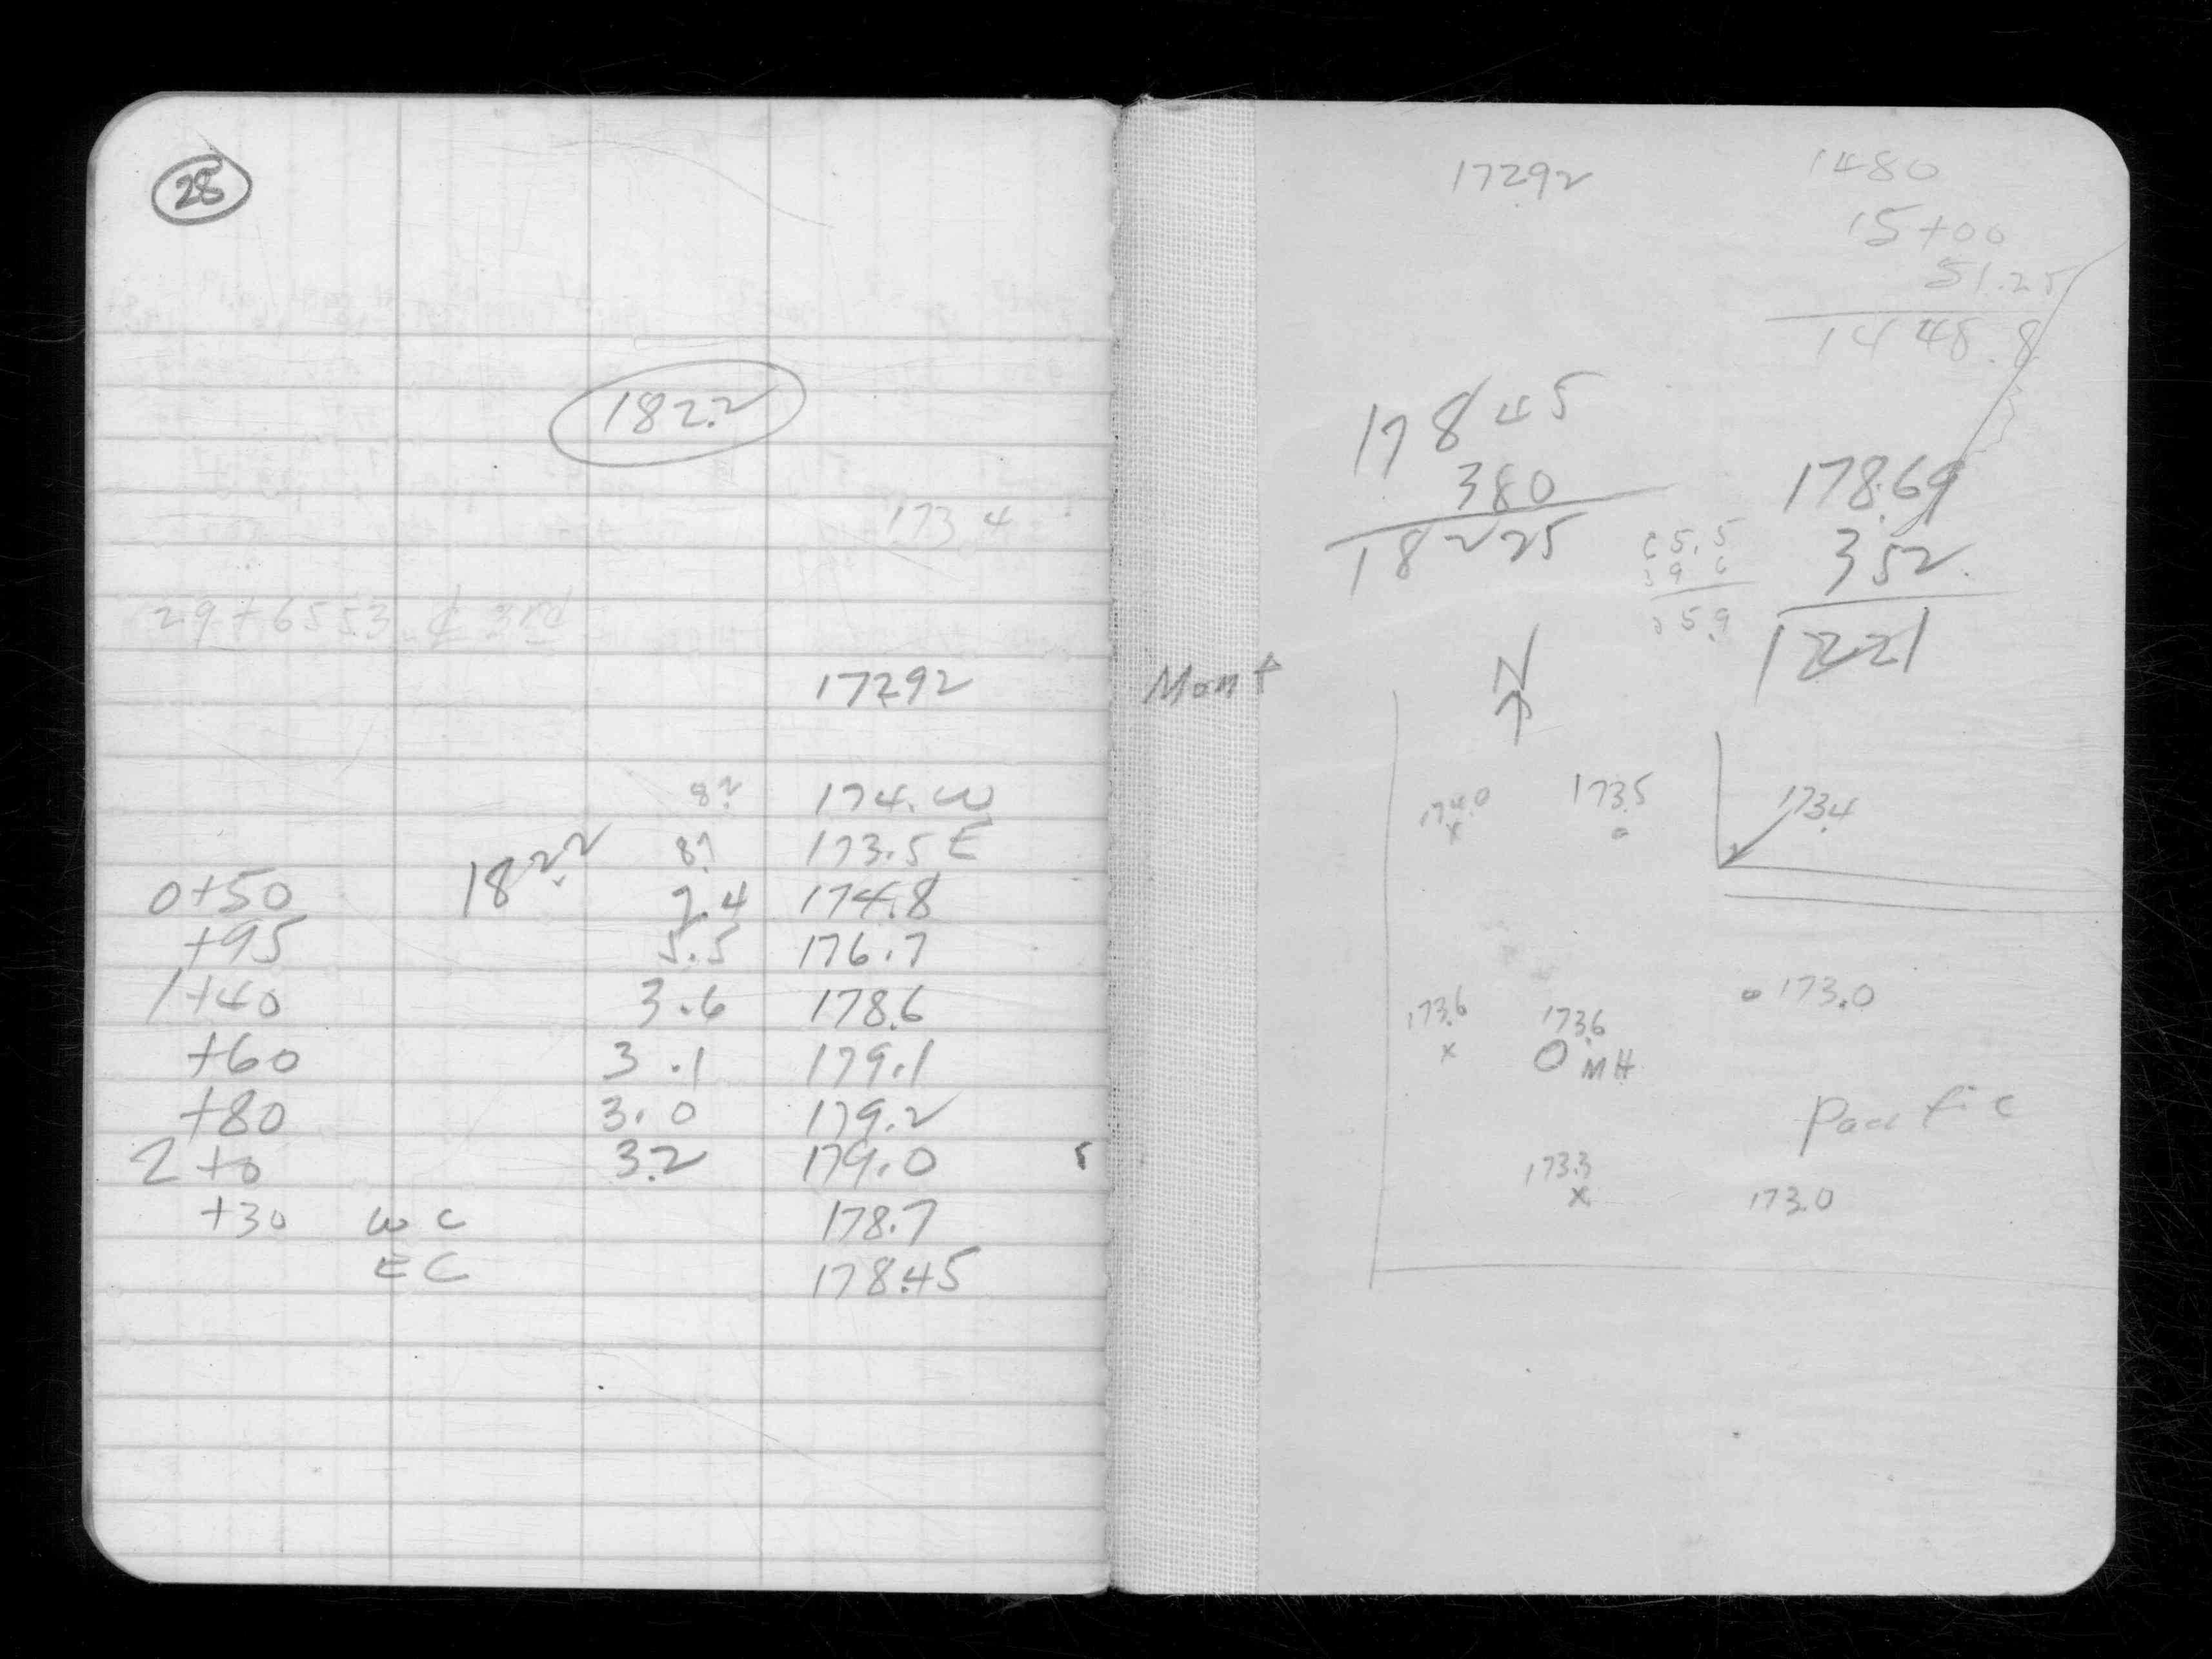 28
182.2
173.4
29+6553 ₵ 3rd
172.92 Mont
8.2 174. W
8.7 173.5 E
0+50 182.2 7.4 174.8
+95 5.5 176.7
1+40 3.6 178.6
+60 3.1 179.1
+80 3.0 179.2
2+0 3.2 179.0
+30 W C 178.7
E C 178.45
172.92
1480
15+00
51.25
1448.8
178 45
380
182 25
178.69
352
N
174.0
x
173.5
173.4
173.6
x
173.6
MH
173.0
Pacific
173.3
x
173.0